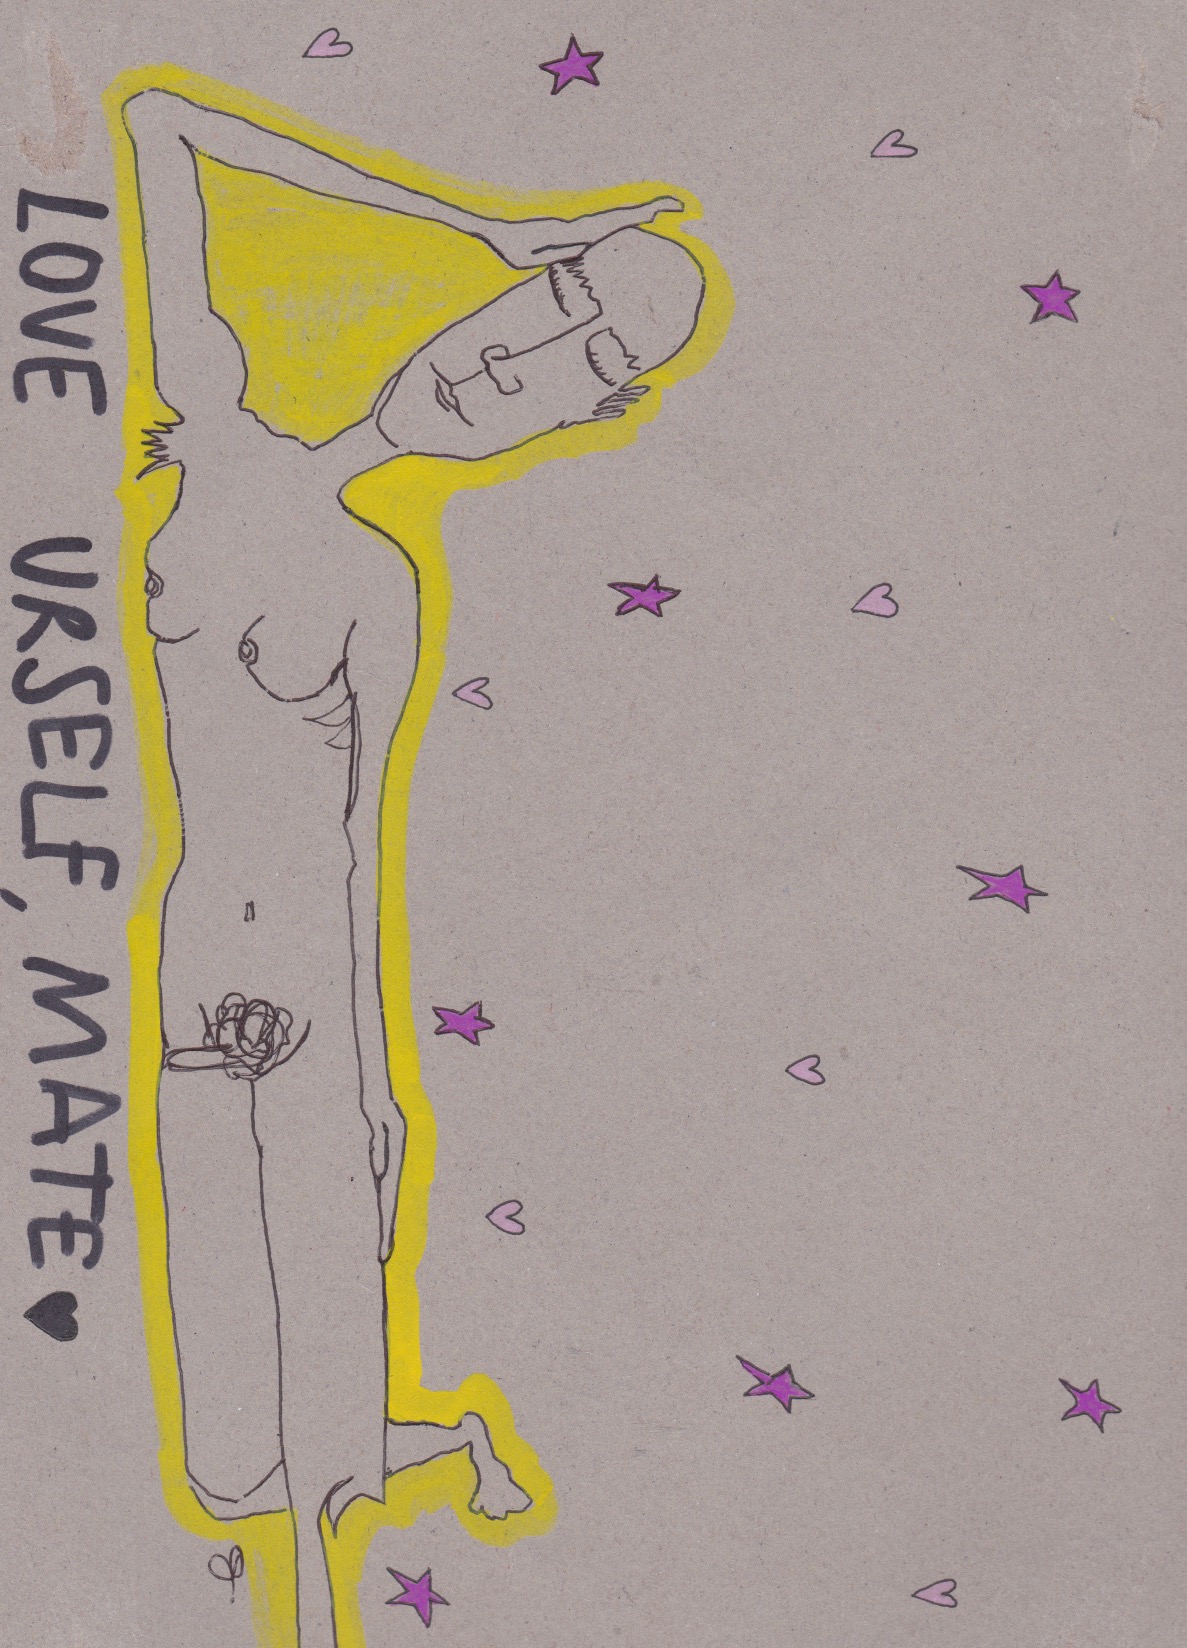 LOVE URSELF, MATE ♥